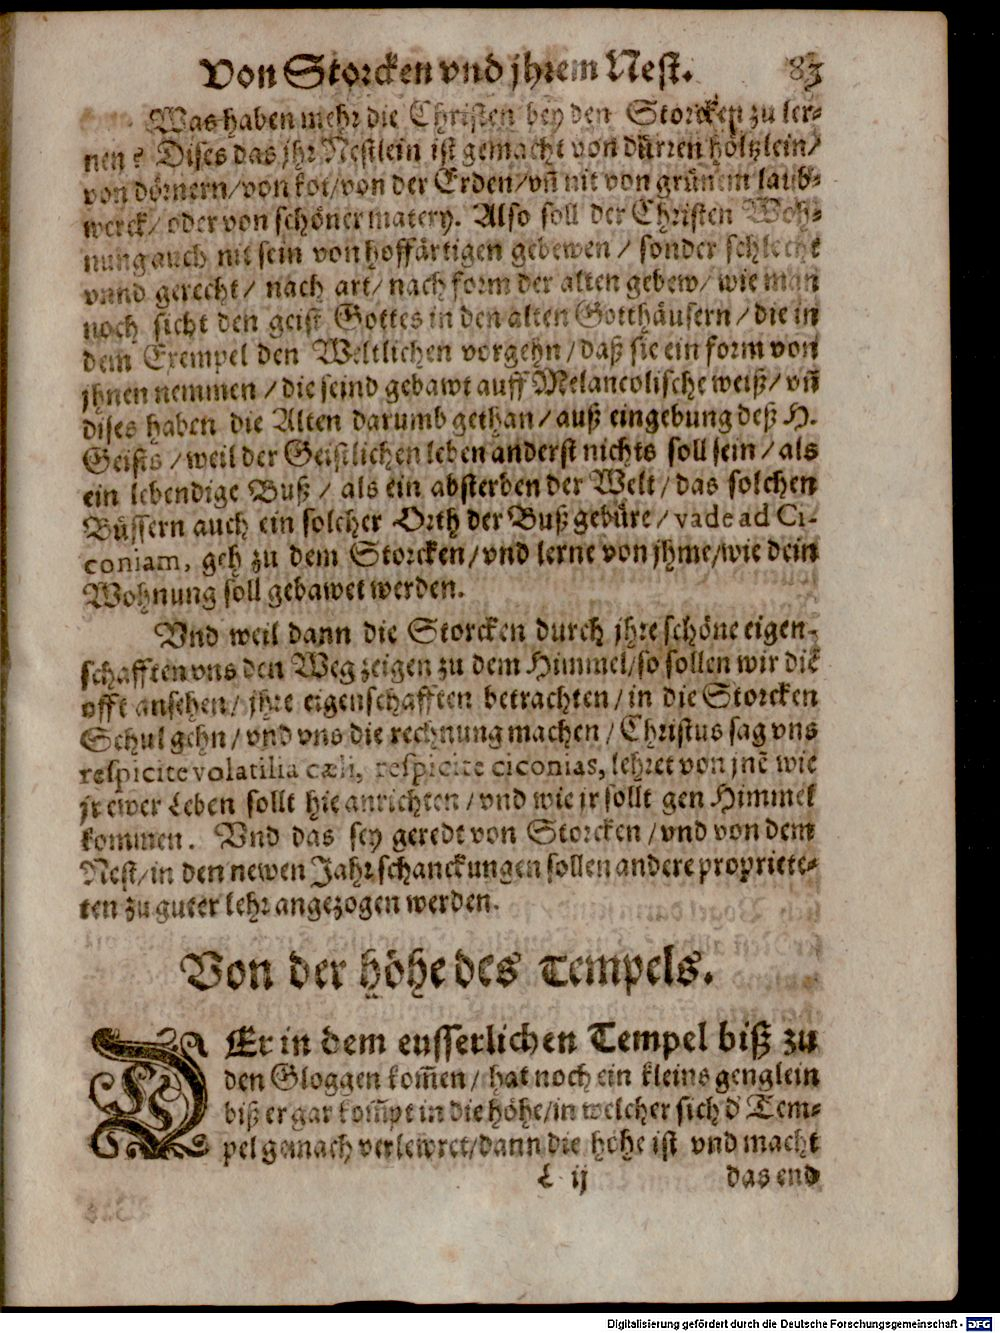 Von Storcken vnd jhrem Nest. 83
Was haben mehr die Christen bey den Storcken zu ler-
nen? Dises das jhr Nestlein ist gemacht von dürren höltzlein/
von dörnern/von kot/von der Erden/vñ nit von grünem laub-
werck/ oder von schöner matery. Also soll der Christen Woh-
nung auch nit sein von hoffärtigen gebewen / sonder schlecht
vnnd gerecht/ nach art/ nach form der alten gebew/ wie man
noch sicht den geist Gottes in den alten Gotthäusern/ die in
dem Exempel den Weltlichen vorgehn/ daß sie ein form von
jhnen nemmen / die seind gebawt auff Melancolische weiß/ vñ
dises haben die Alten darumb gethan/ auß eingebung deß H.
Geists /weil der Geistlichen leben anderst nichts soll sein/ als
ein lebendige Buß / als ein absterben der Welt/ das solchen
Büssern auch ein solcher Orth der Buß gebüre/ vade ad Ci-
coniam, geh zu dem Storcken/vnd lerne von jhme/wie dein
Wohnung soll gebawet werden.
Vnd weil dann die Storcken durch jhre schöne eigen-
schafften vns den Weg zeigen zu dem Himmel/so sollen wir die
offt ansehen/ jhre eigenschafften betrachten/ in die Storcken
Schul gehn/ vnd vns die rechnung machen/ Christus sag vns
respicite volatilia cæli, respicite ciconias, lehret von jnē wie
jr ewer Leben sollt hie anrichten/ vnd wie jr sollt gen Himmel
kommen. Vnd das sey geredt von Storcken/ vnd von dem
Nest/in den newen Jahrschanckungen sollen andere propriete-
ten zu guter lehr angezogen werden.
Von der höhe des Tempels.
DEr in dem eusserlichen Tempel biß zu
den Gloggen kom̄en/ hat noch ein kleins genglein
biß er gar kom̄pt in die höhe/in welcher sich d' Tem-
pel gemach verlewret/dann die höhe ist vnd macht
L ij das end
Digitalisierung gefördert durch die Deutsche Forschungsgemeinschaft - DFG